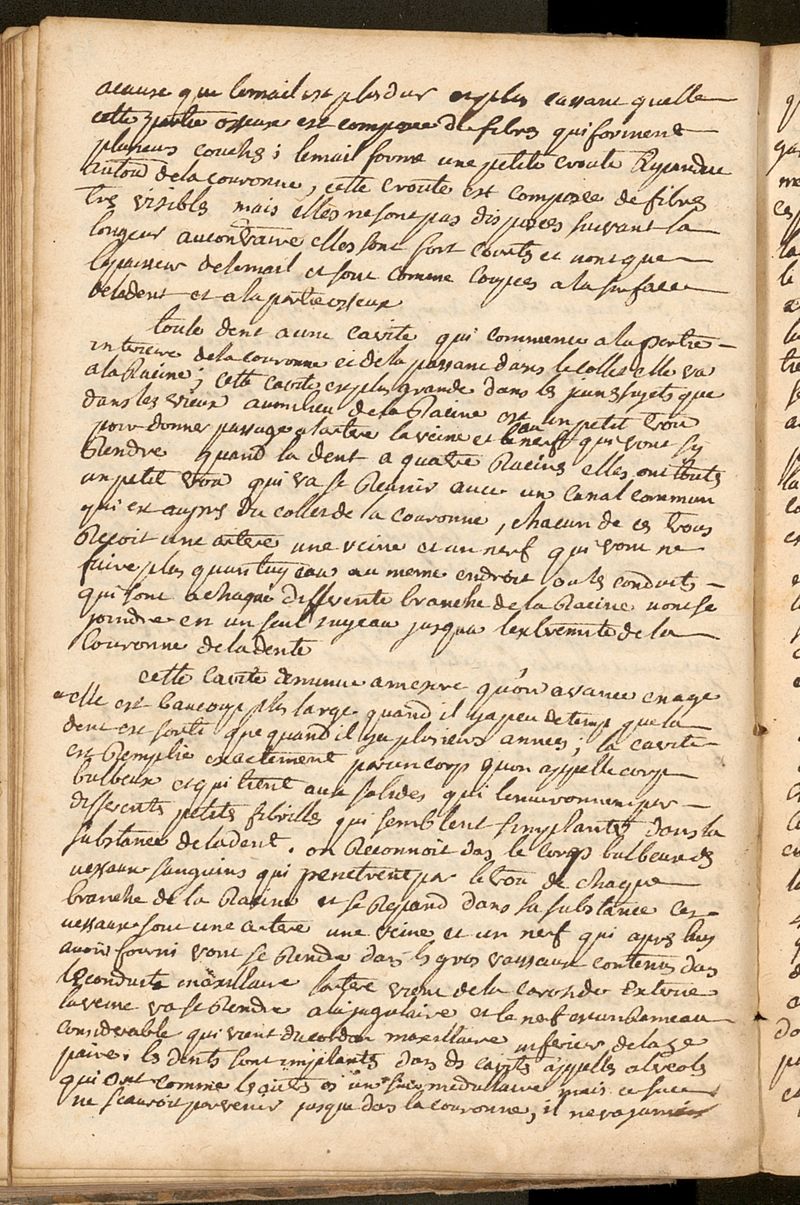 acause que lemail est plus dur et plus cassant quelle
cette partie osseuse est composee de fibres qui forment
plusieurs couches ; lemail forme une petite croute Repandue
autour de la couronne, cette croute est composee de fibres
tres visibles mais elles ne sont pas disposees suivant la
longeur aucontraire elles sont fort courtes et nont que
lepaisseur de lemail et sont comme coupees a la surface
de la dent et a la partie osseux
toute dent a une cavite qui commence a la partie
interieure de la couronne et de la passant dans le collet elle va
a la Racine ; cette cavite est plus grande dans les jeunes sujets que
dans les vieux au milieu de la Racine est un petit trou
pour donner passage a lartere la veine et le nerf qui vont sy
Rendre quand la dent a quatre Racines elles ont touts
un petit trou qui va se Reunir avec un canal commun
qui est aupres du collet de la couronne, chacun de ces trous
Recoit une artere une veine et un nerf qui vont ne
faire plus quun tuyeau au meme endroit ou les conduits
qui sont a chaque differente branche de la Racine vont se
joindre en un seul tuyeau jusqua lextremite de la
Couronne de la dente
cette cavite diminue a mesure qu'on avance en age
elle est beaucoup plus large quand il y a peu de temp que la
dent est sortie que quand il y a plusieurs annees ; la cavite
est Remplie exactement par un corp quon appelle corp
bulbeux et qui tient aux solides qui lenvironnent par
differents petits fibrilles qui semblent simplanter dans la
substance de la dent. on Reconnoit das le corps bulbeux des
vessaux sanguins qui penetrent par le trou de chaque
branche de la Racine et se Repand dans sa substance ces
vessaux sont une artere une veine et un nerf qui apres luy
avoir fourni vont se Rendre dans les gros vaissaux contenus das
le conduit maxillaire lartere vient de la carotide Externe
la veine va se Rendre a la jugulaire et le nerf est un Rameau
considerable qui vient du cordon maxillaire inferieur de la 5e
paire. les dents sont implantes dans des cavites appelles alveoles
qui ont comme les autres os un suc medullaire mais ce succ
ne scauroit parvenir jusque das la couronne, il ne va jamais